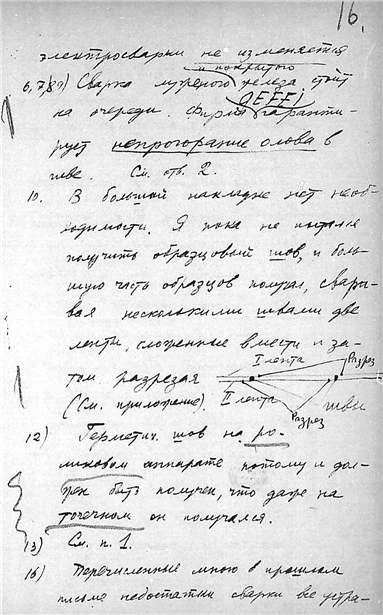 16.
электросварки не изменяется
и покрытого
6, 7, 8, 9) Сварка луженого железа стоит
на очереди. Фирма AEFFI гаранти-
рует непрогорание олова в
шве. См. отв. 2.
10. В большой накладке нет необ-
ходимости. Я пока не пытался
получить образцовый шов, и боль-
шую часть образцов получал, свары-
вая несколькими швами две
ленты, сложенные вместе и за-
тем разрезая
I лента Разрез
(См. приложение). II лента Разрез швы
12) Герметич. шов на ро-
ликовом аппарате потому и дол-
жен быть получен, что даже на
точечном он получался.
13) См. п. 1.
16) Перечисленные мною в прошлом
письме недостатки сварки все устра-